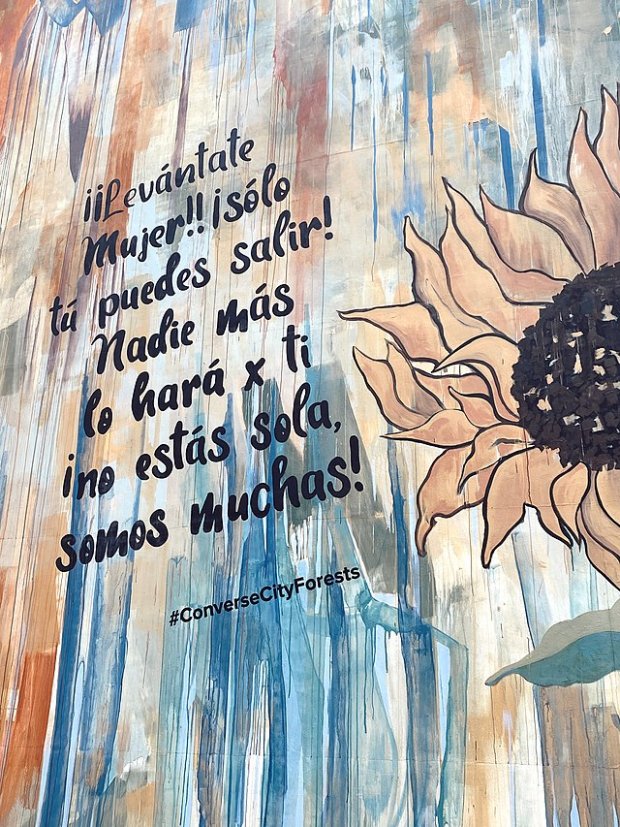 ¡¡Levántate
Mujer!! ¡sólo
tú puedes salir!
Nadie más
lo hará x ti
¡no estás sola,
somos muchas!
#ConverseCityForests